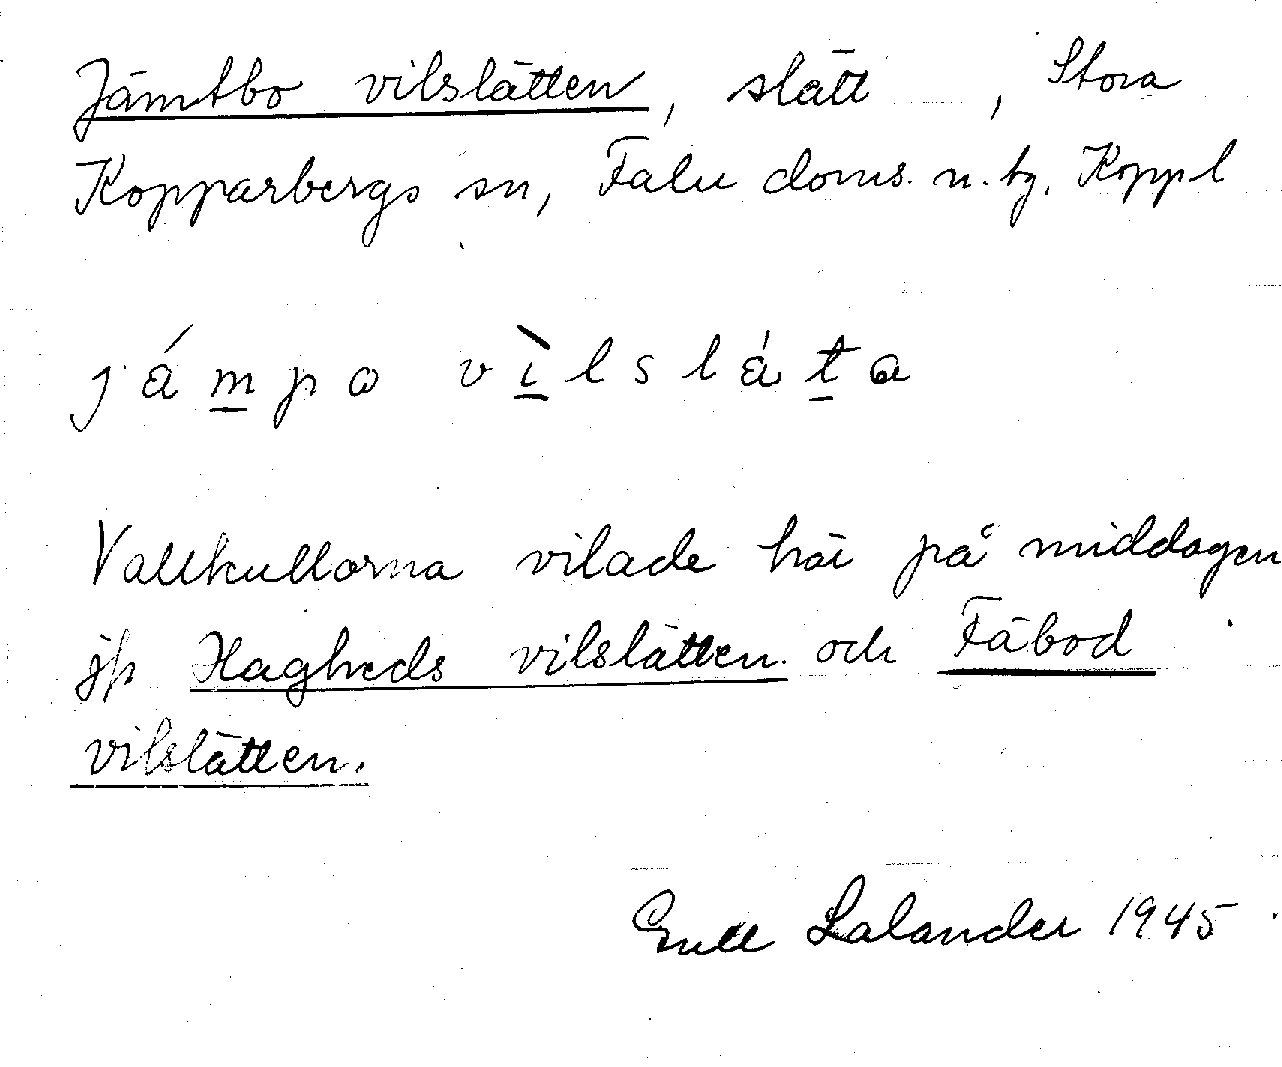 Jämtbo vilslätten, slätt , Stora
Kopparbergs sn, Falu doms. n. tg. Kopp.l
jámpo vìlsláta
Vallkullorna vilade här på middagen
jfr Hagheds vilslätten och Fäbod
vilslätten.
Lalander 1945